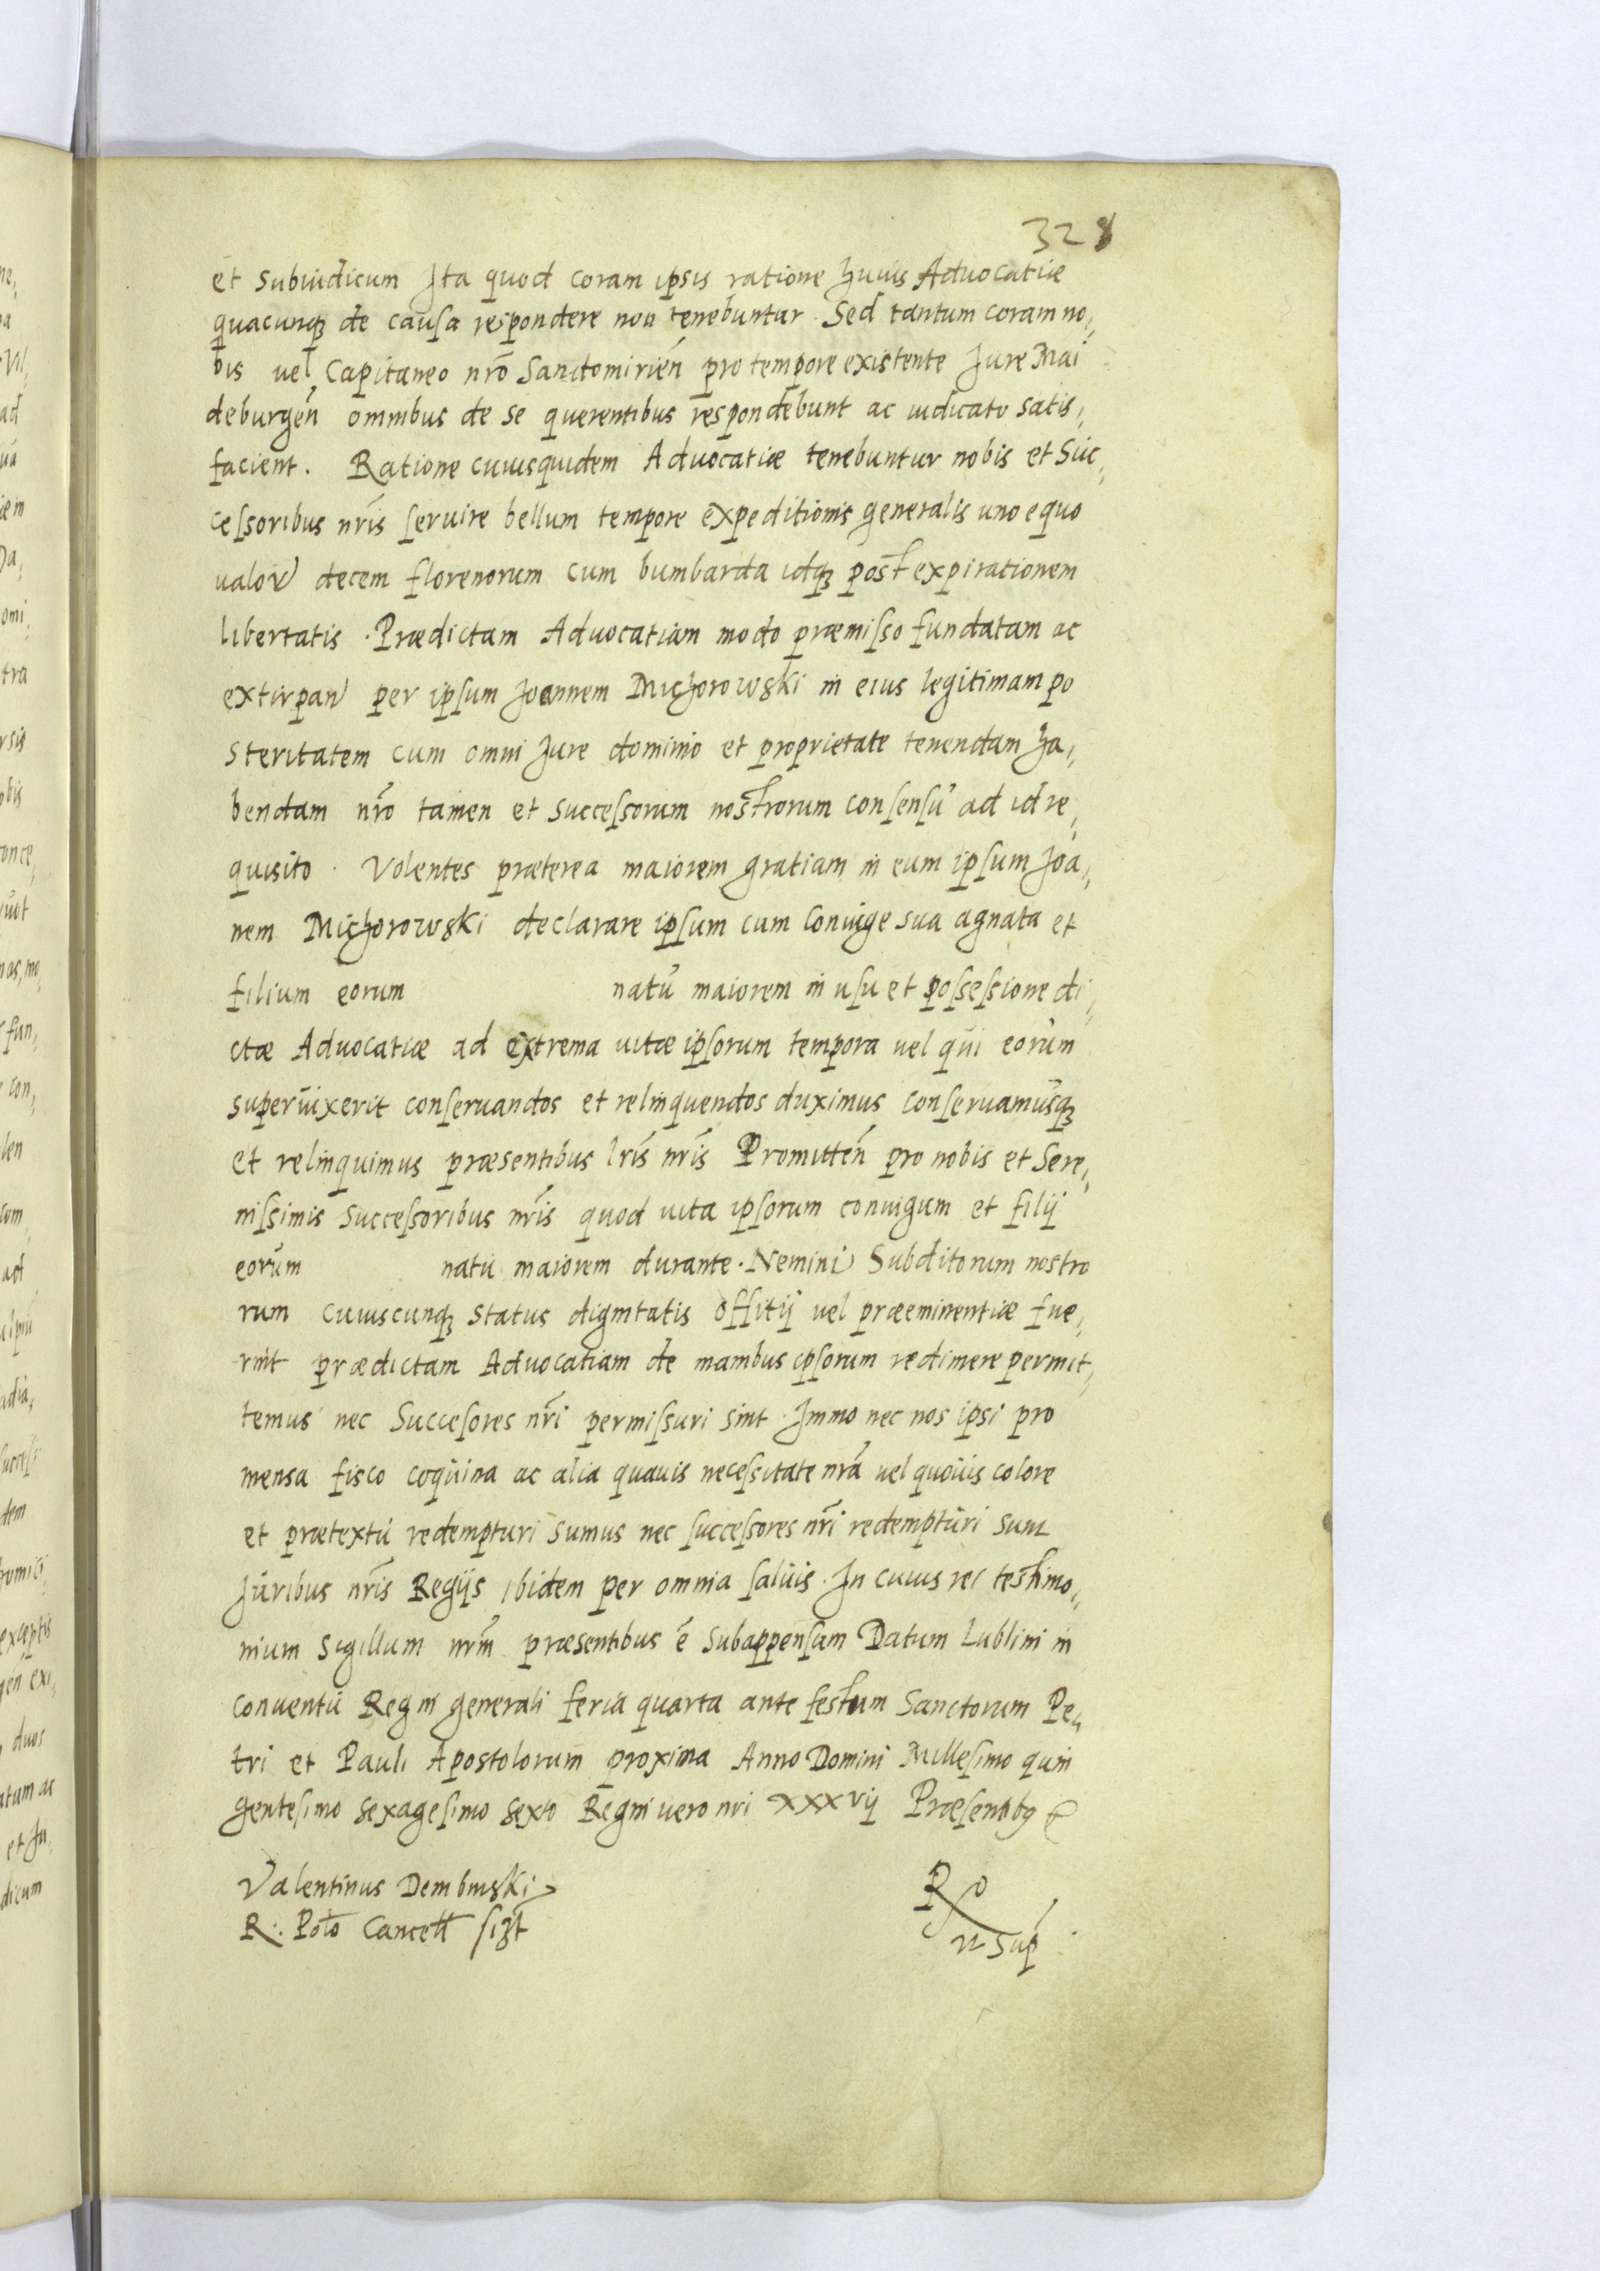 328
et subiudicum Ita quod coram ipsis ratione huius Advocatiæ
quacunqȝ de causa respondere non tenebuntur. Sed tantum coram no,
bis vel Capitaneo nrō Sandomirien̄ pro tempore existente Jure Mai
deburgen̄ omnibus de se querentibus respondebunt ac iudicato satis,
facient. Ratione cuiusquidem Advocatiæ tenebuntur nobis et Suc,
cessoribus nr̄is servire bellum tempore expeditionis generalis uno equo
valor̄ decem florenorum cum bumbarda idqȝ post expirationem
libertatis. Prædictam Advocatiam modo præmisso fundatam ac
extirpan̄ per ipsum Joannem Michorowski in eius legitimam po
steritatem cum omni Jure dominio et proprietate tenendam ha,
bendam nr̄o tamen et successorum nostrorum consensu ad id re,
quisito. Volentes præterea maiorem gratiam in eum ipsum Joa,
nem Michorowski declarare ipsum cum Coniuge sua agnata et
filium eorum natu maiorem in usu et possessione di,
ctæ Advocatiæ ad extrema vitæ ipsorum tempora vel qui eorum
supervixerit conservandos et relinquendos duximus conservamusqȝ
et relinquimus præsentibus lr̄is nr̄is Promitten̄ pro nobis et Sere,
nissimis Successoribus nr̄is quod vita ipsorum coniugum et filij
eorum natu maiorem durante. Nemini Subditorum nostro
rum cuiuscunqȝ status dignitatis offitij vel præeminentiæ fue,
rint prædictam Advocatiam de manibus ipsorum redimere permit,
temus nec Succesores nr̄i permissuri sint. Immo nec nos ipsi pro
mensa fisco coquina ac alia quavis necessitate nr̄a vel quovis colore
et prætextu redempturi sumus nec successores nr̄i redempturi sunt
Juribus nr̄is Regijs ibidem per omnia salvis. In cuius rei testimo,
nium sigillum nr̄m præsentibus ē subappensum Datum Lublini in
conventu Regni generali feria quarta ante festum Sanctorum Pe,
tri et Pauli Apostolorum proxima Anno Domini Millesimo quin
gentesimo sexagesimo sexto Regni vero nri XXXvij Præsentibg &
Valentinus Dembinski
R. Poło Cancell sszt
Ro
ut sup